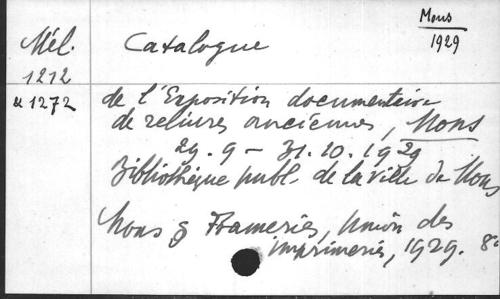 Mons
1929
Mél.
1212
& 1272
Catalogue
de l'Exposition documentaire
de reliures anciennes, Mons
29.9 - 31.10.1929
Bibliothèque publ. de la ville de Mons
Mons & Frameries, Union des
imprimeries, 1929. 8°